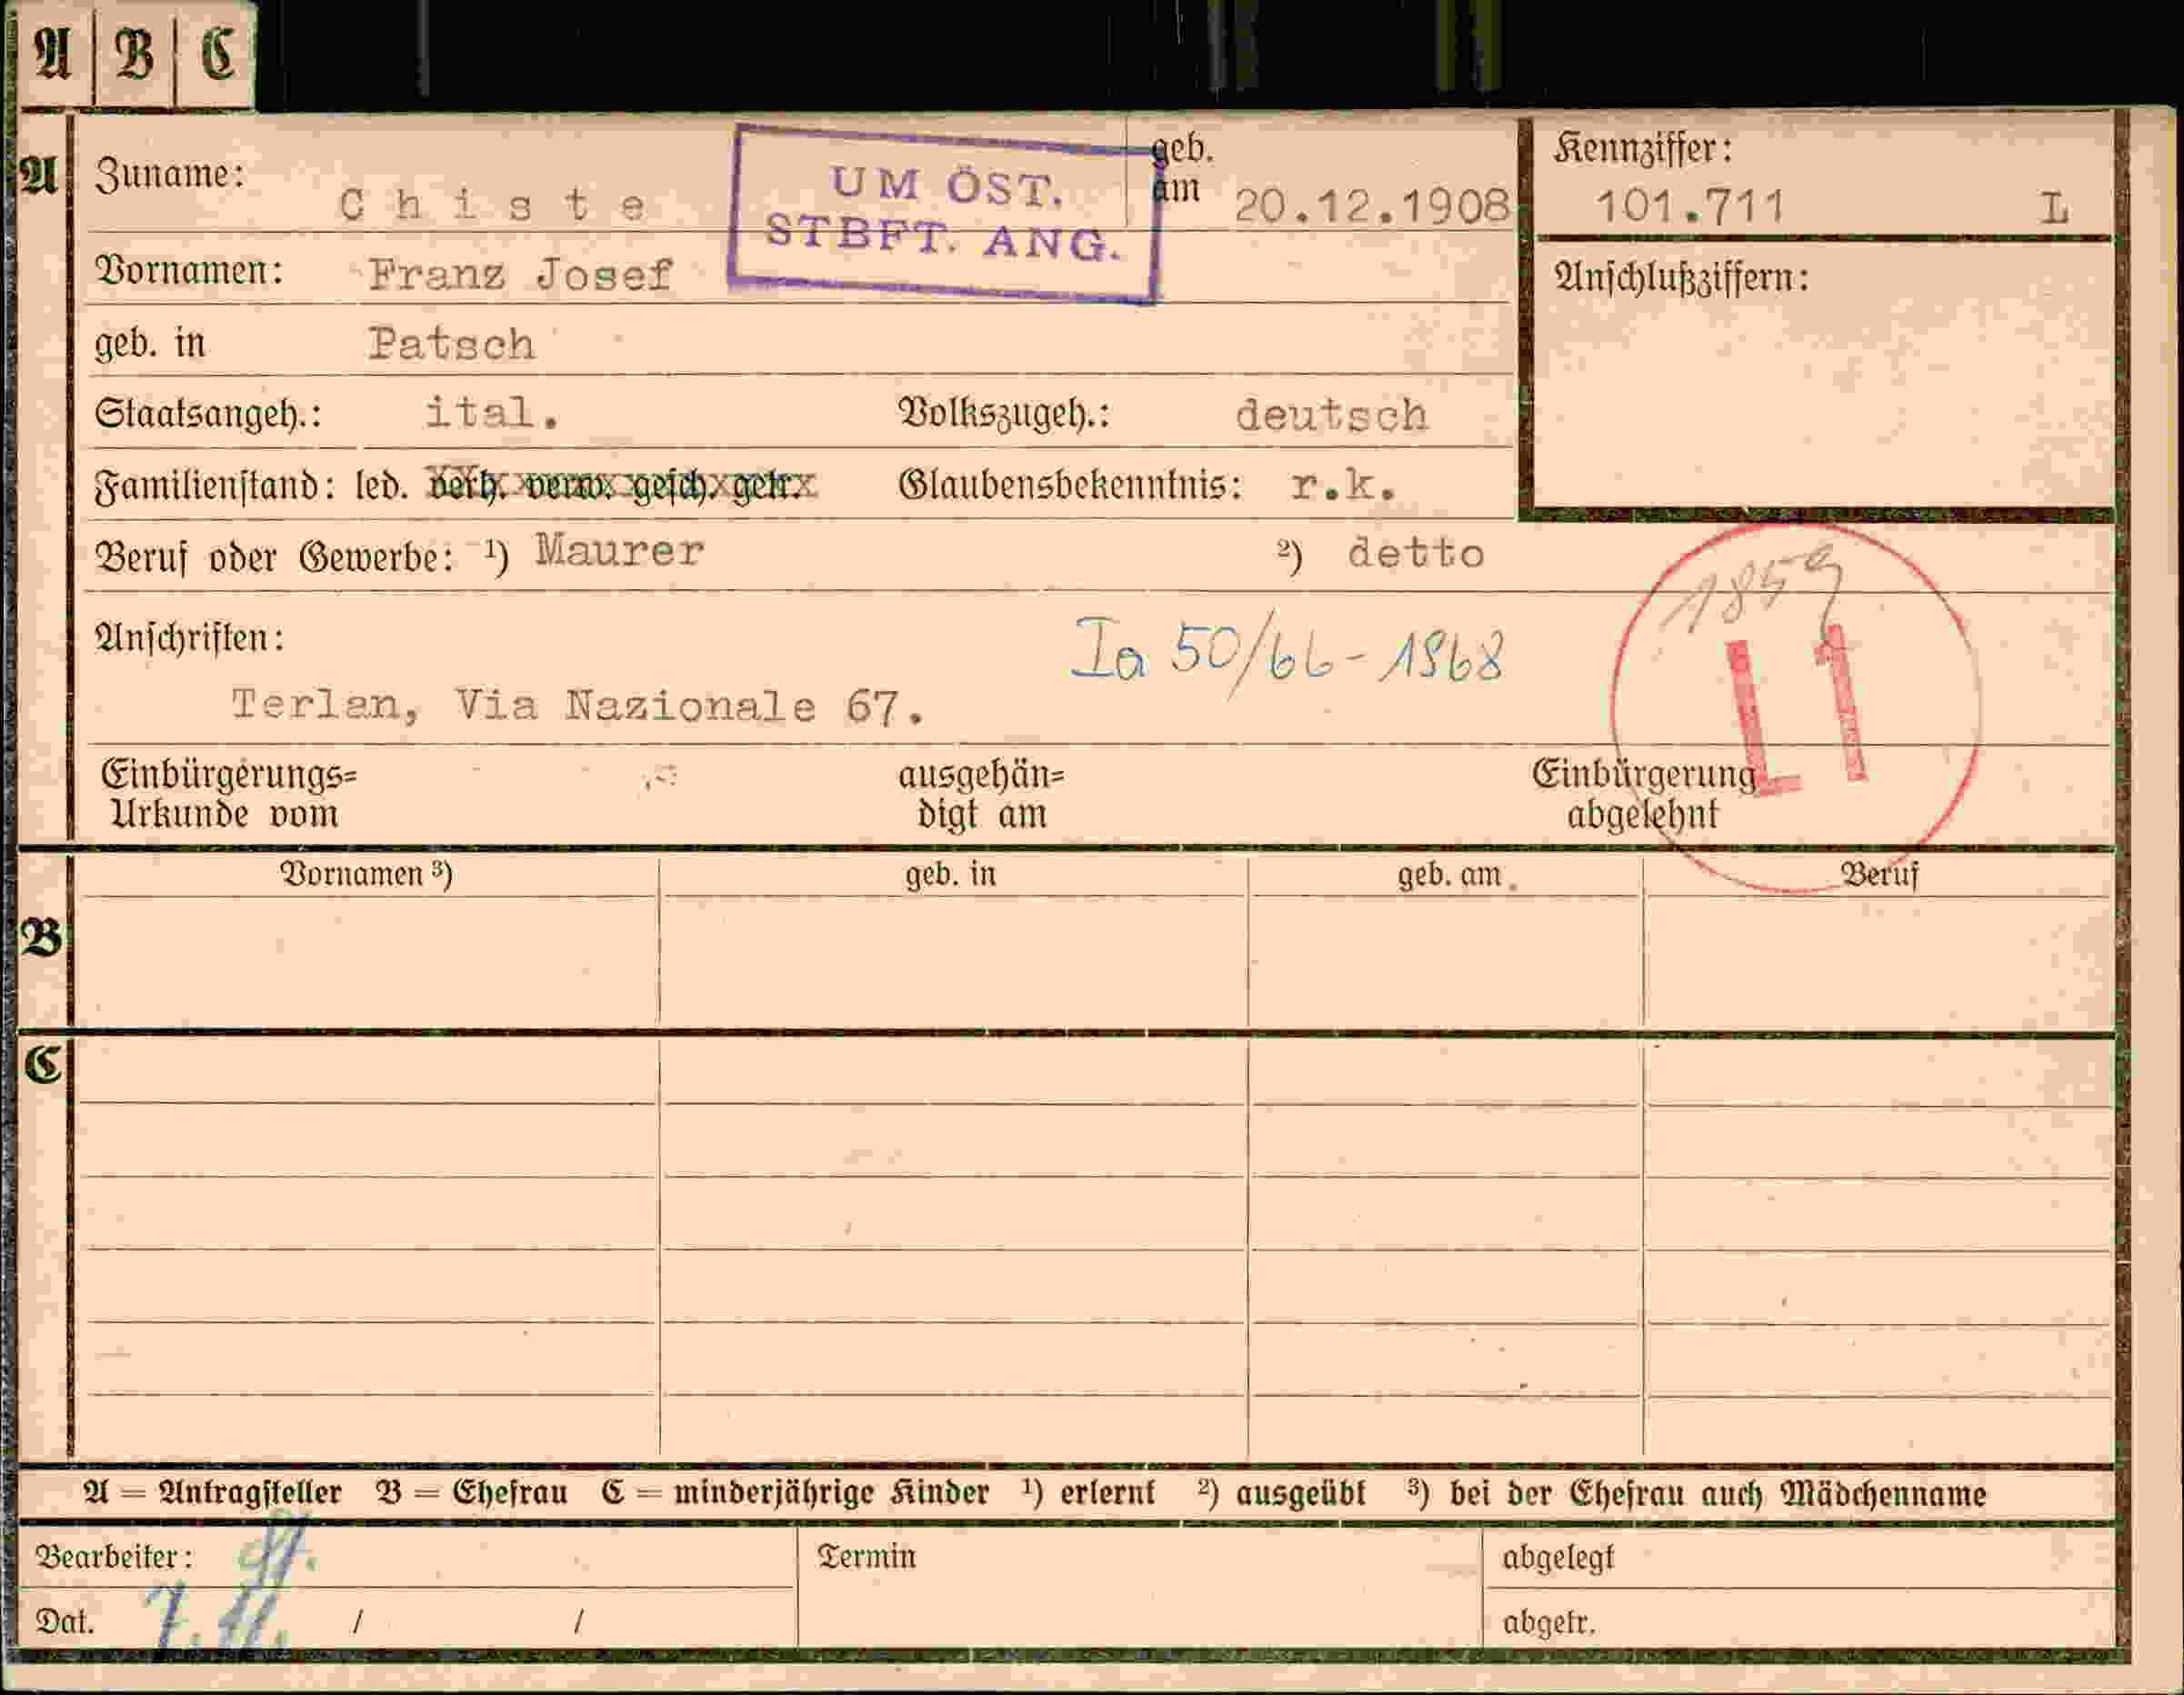 A B C
A Zuname: Chiste geb. am 20.12.1908 Kennziffer: 101.711 L
UM ÖST.
STBFT. ANG.
Vornamen: Franz Josef Anschlußziffern:
geb. in Patsch
Staatsangeh.: ital. Volkszugeh.: deutsch
Familienstand: led. verh. verw. gesch. getr. Glaubensbekenntnis: r.k.
Beruf oder Gewerbe: ¹) Maurer ²) detto
1859
L1
Anschriften: Ia 50/66-1968
Terlan, Via Nazionale 67.
Einbürgerungs= ausgehän= Einbürgerung
Urkunde vom digt am abgelehnt
B Vornamen ³) geb. in geb. am Beruf
C
A = Antragsteller B = Ehefrau C = minderjährige Kinder ¹) erlernt ²) ausgeübt ³) bei der Ehefrau auch Mädchenname
Bearbeiter: Termin abgelegt
Dat. 7. 11. / / abgetr.